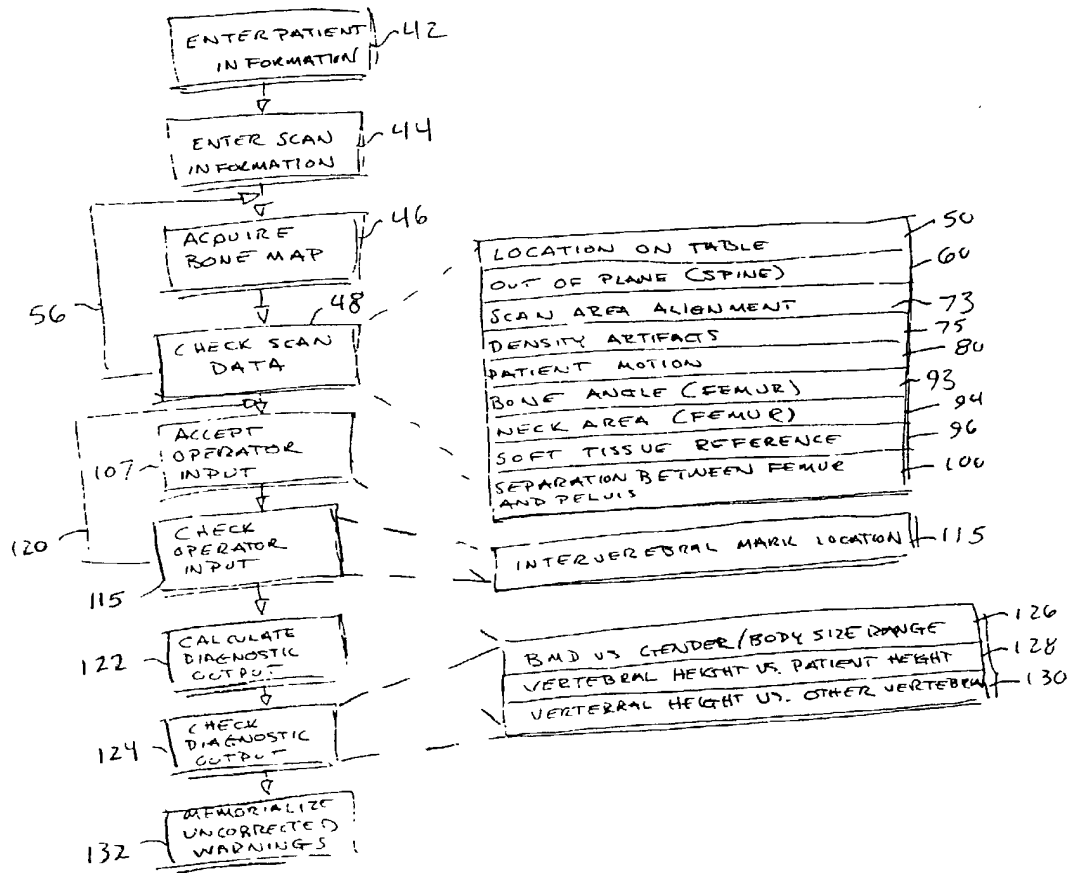 ENTER PATIENT
INFORMATION
42
ENTER SCAN
INFORMATION
44
ACQUIRE
BONE MAP
46
56
CHECK SCAN
DATA
48
ACCEPT
OPERATOR
INPUT
107
120
CHECK
OPERATOR
INPUT
115
CALCULATE
DIAGNOSTIC
OUTPUT
122
CHECK
DIAGNOSTIC
OUTPUT
124
MEMORIALIZE
UNCORRECTED
WARNINGS
132
LOCATION ON TABLE
50
OUT OF PLANE (SPINE)
60
SCAN AREA ALIGNMENT
73
DENSITY ARTIFACTS
75
PATIENT MOTION
80
BONE ANGLE (FEMUR)
93
NECK AREA (FEMUR)
94
SOFT TISSUE REFERENCE
96
SEPARATION BETWEEN FEMUR
AND PELVIS
100
INTERVEREBRAL MARK LOCATION
115
BMD VS GENDER/BODY SIZE RANGE
126
VERTEBRAL HEIGHT VS. PATIENT HEIGHT
128
VERTEBRAL HEIGHT VS. OTHER VERTEBRA
130